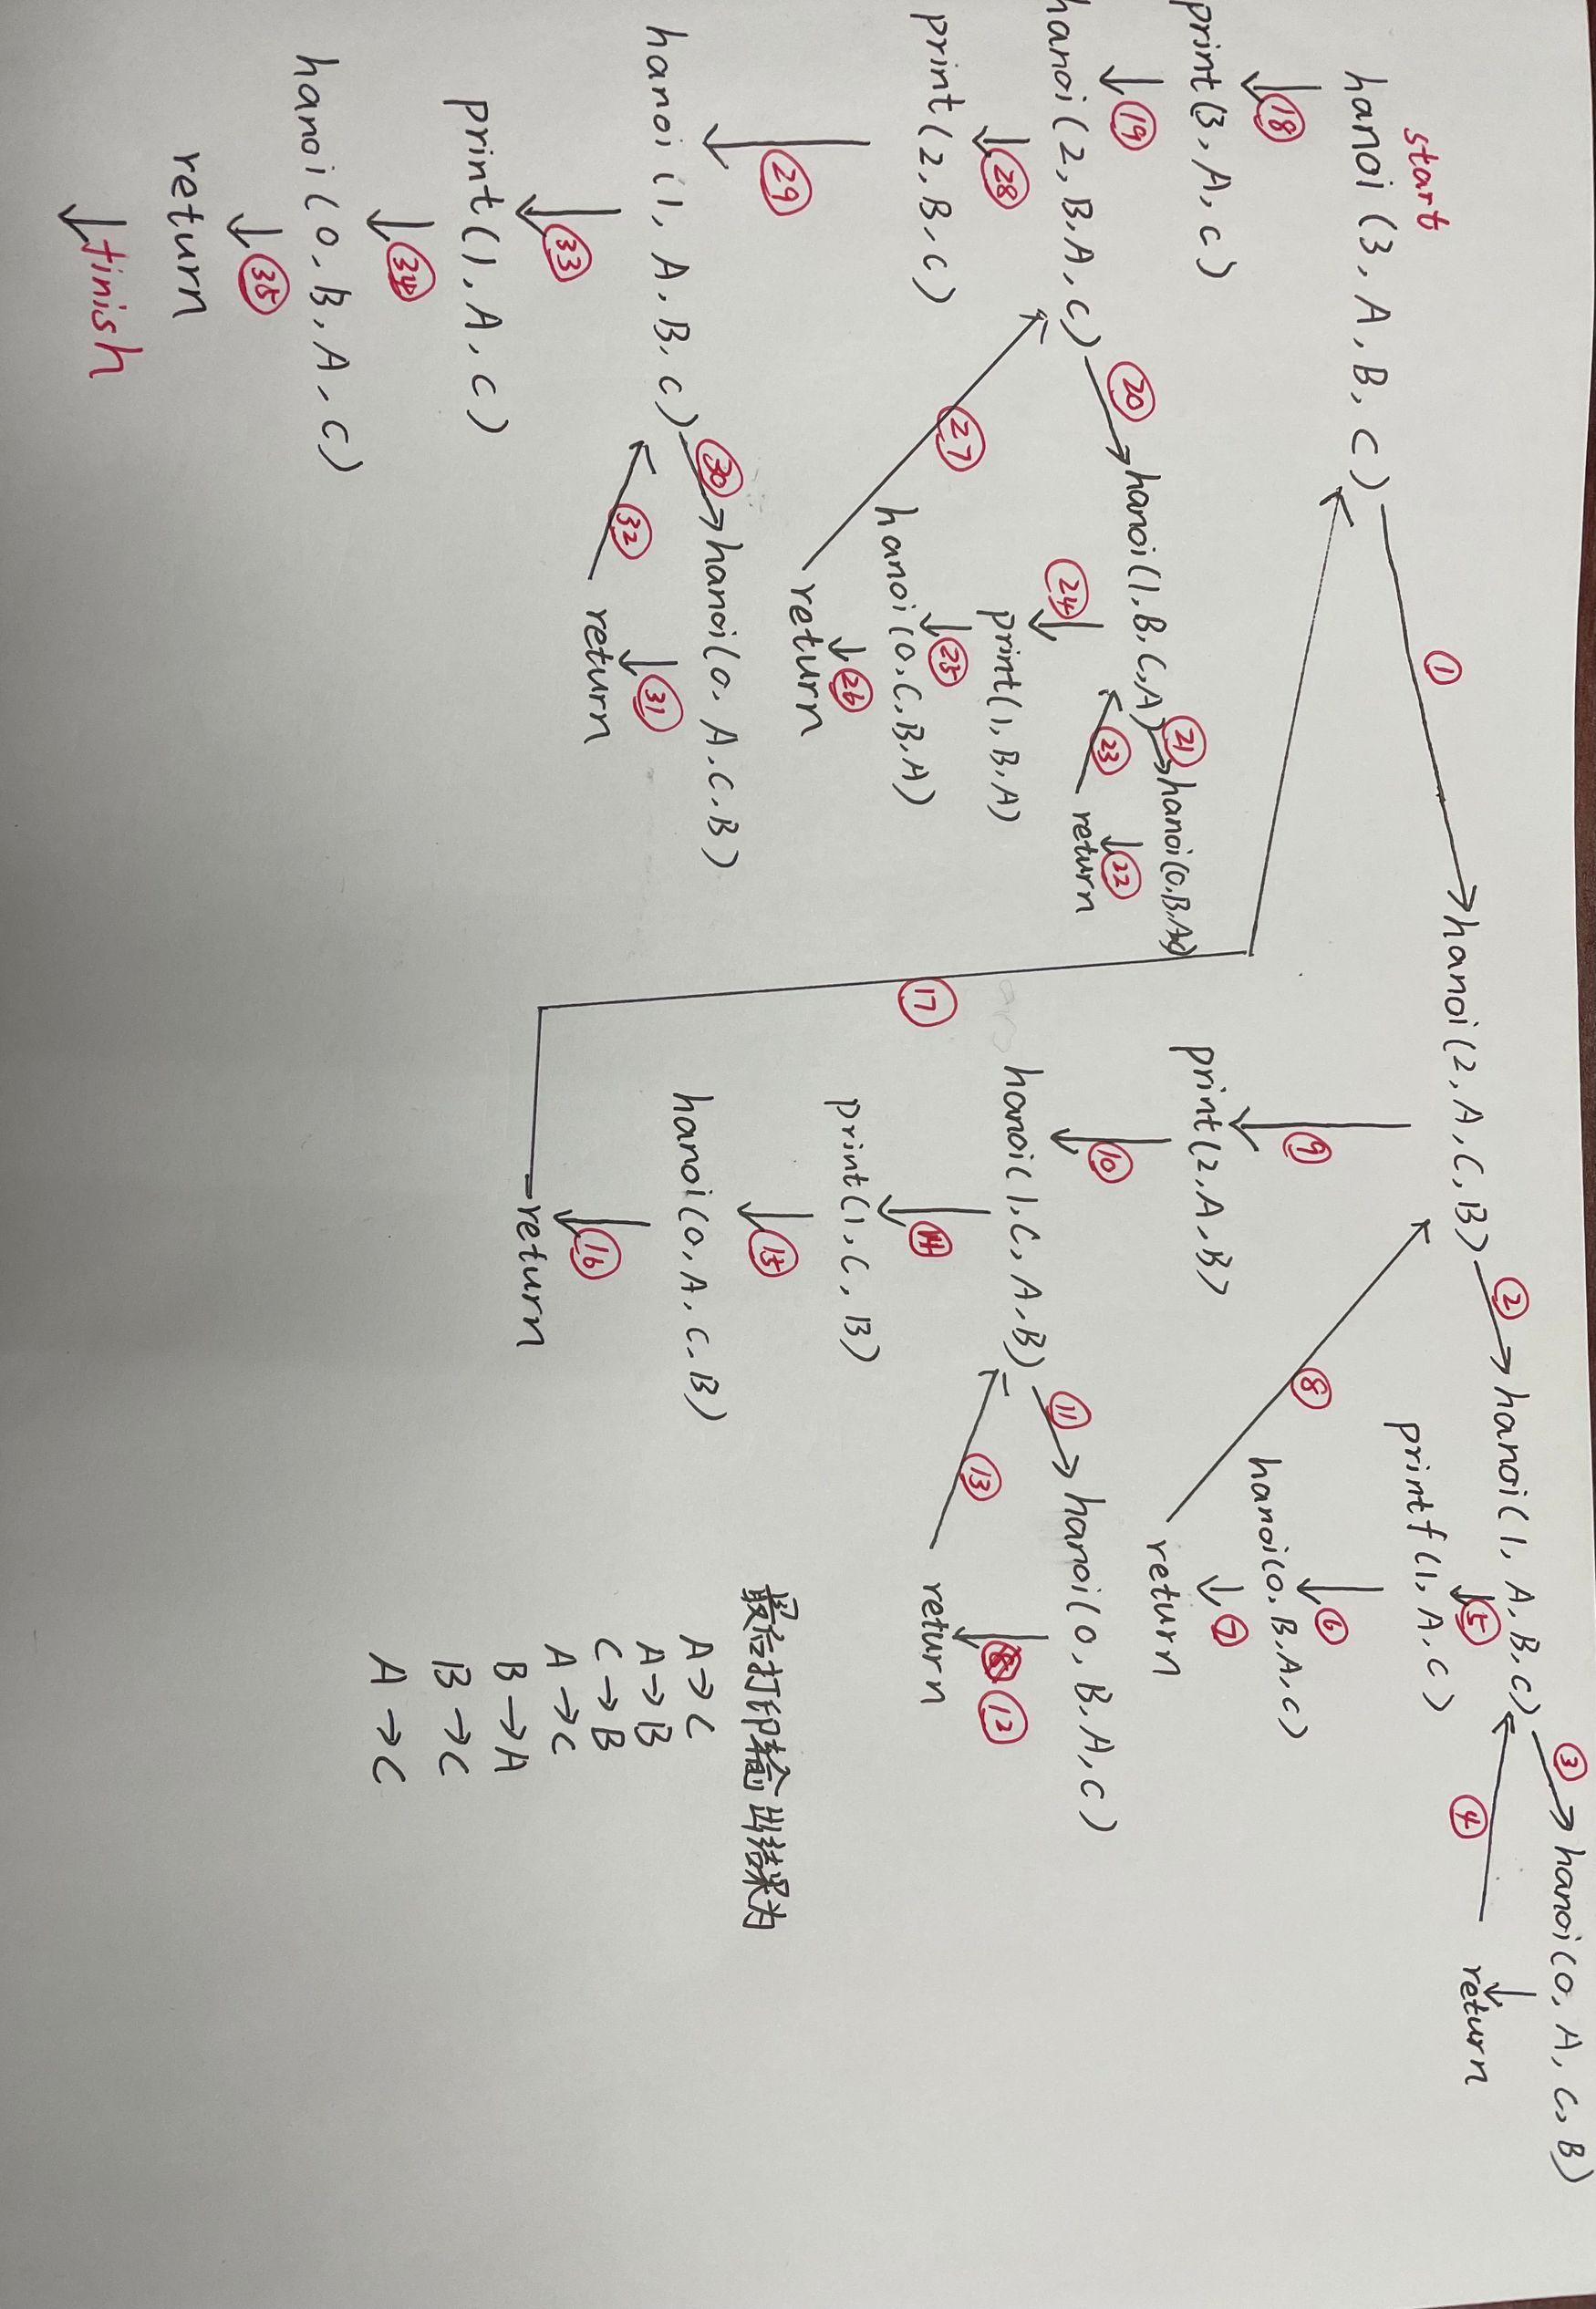 start
hanoi(3, A, B, C)
①
hanoi(2, A, C, B)
②
hanoi(1, A, B, C)
③
hanoi(0, A, C, B)
return
④
⑤
printf(1, A, C)
⑥
hanoi(0, B, A, C)
⑦
return
⑧
⑨
print(2, A, B)
⑩
hanoi(1, C, A, B)
⑪
hanoi(0, B, A, C)
⑫
return
⑬
⑭
print(1, C, B)
⑮
hanoi(0, A, C, B)
⑯
return
⑰
⑱
print(3, A, C)
⑲
hanoi(2, B, A, C)
⑳
hanoi(1, B, C, A)
㉑
hanoi(0, B, A
㉒
return
㉓
㉔
print(1, B, A)
㉕
hanoi(0, C, B, A)
㉖
return
㉗
㉘
print(2, B, C)
㉙
hanoi(1, A, B, C)
㉚
hanoi(0, A, C, B)
㉛
return
㉜
㉝
print(1, A, C)
㉞
hanoi(0, B, A, C)
㉟
return
finish
最后打印输出结果为
A→C
A→B
C→B
A→C
B→A
B→C
A→C